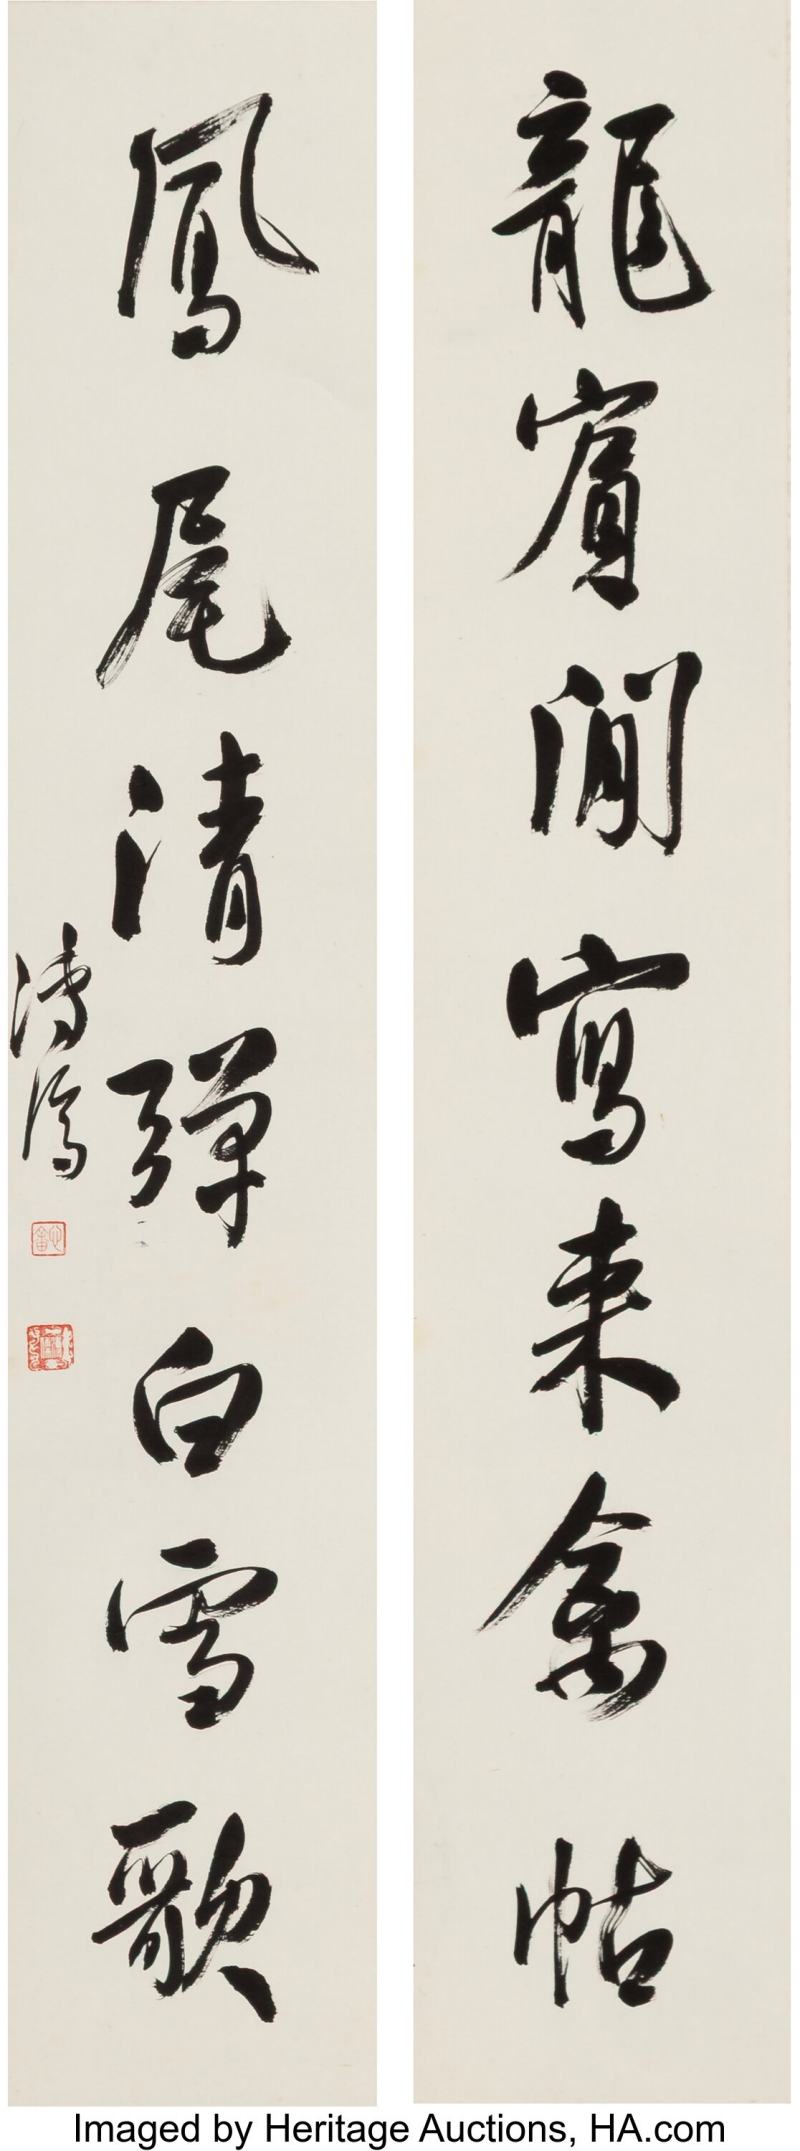 龍賓閒寫來禽帖
鳳尾清彈白雪歌
溥濡
心畬
Imaged by Heritage Auctions, HA.com